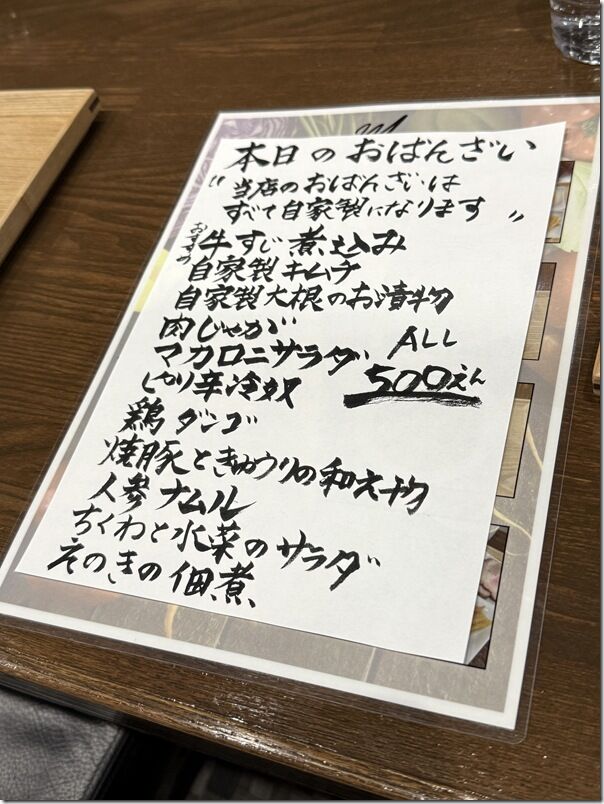 本日のおばんざい
"当店のおばんざいは
すべて自家製になります"
おすすめ 牛すじ煮込み
自家製キムチ
自家製大根のお漬物
肉じゃが
マカロニサラダ
ALL
500えん
ピリ辛冷奴
鶏ダンゴ
焼豚ときゅうりの和え物
人参ナムル
ちくわと水菜のサラダ
えのきの佃煮